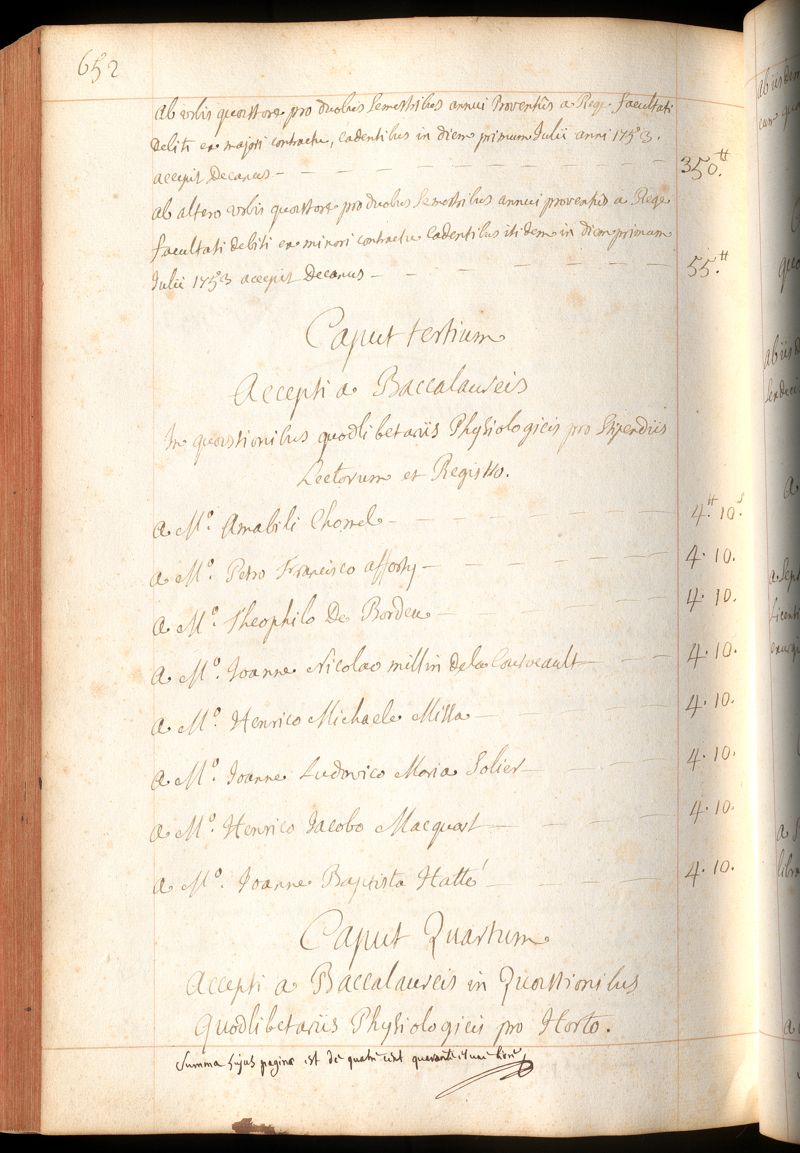 652
Ab urbis quæstore pro duobus semestribus annui Proventûs a Rege facultati
debiti ex majori contractu, cadentibus in diem primum Julii anni 1753.
accepit Decanus - 350.tt
ab altero urbis quæstore pro duobus semestribus annui proventus a Rege
facultati debiti ex minori contractu cadentibus itidem in diem primum
Julii 1753 accepit Decanus - 55.tt
Caput tertium
Accepti a Baccalaureis
In quæstionibus quodlibetariis Physiologicis pro Stipendiis
Lectorum et Registro.
a M.o Amabili Chomel - 4.tt 10.s
a M.o Petro Francisco afforty - 4. 10.
a M.o Theophilo De Bordeu - 4. 10.
a M.o Joanne Nicolao millin dela Courveault - 4. 10.
a M.o Henrico Michaele Missa - 4. 10.
a M.o Joanne Ludovico Maria Solier - 4. 10.
a M.o Henrico Jacobo Macquart - 4. 10.
a M.o Joanne Baptista Hatté - 4. 10.
Caput Quartum
Accepti a Baccalaureis in Quæstionibus
Quodlibetariis Physiologicis pro Horto.
Summa hujus paginæ est de quatre cent quarante et une livre